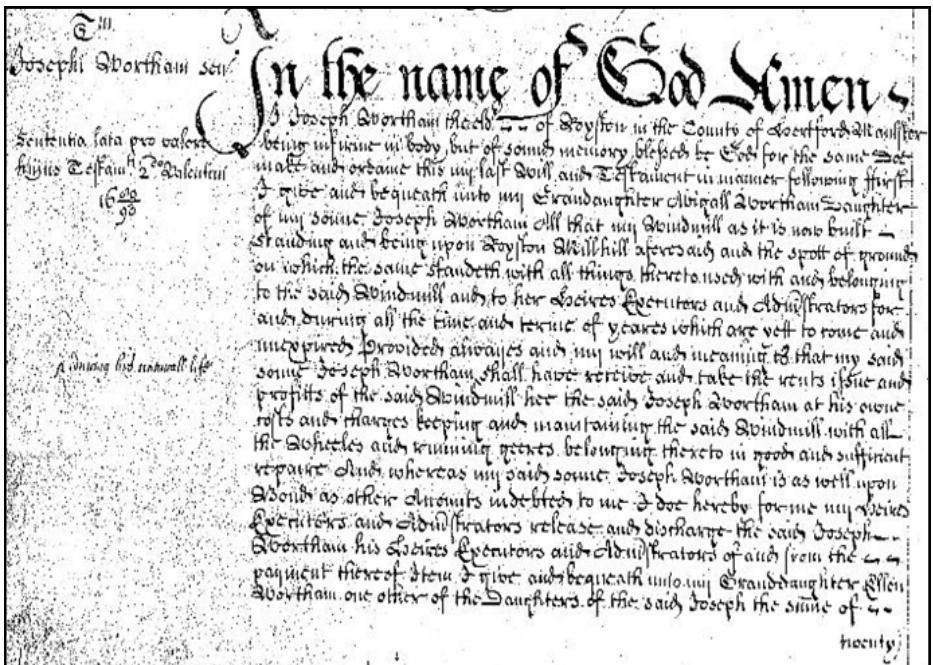 Tm
Josephi Wortham sen
Sententia lata pro valore
hujus Testam.ti 2do Valentini
16 89/90
p dureing his naturall life
In the name of God Amen
I Joseph Wortham the eld of Royston in the County of Hertford Maulster
being infirme in body, but of sound memory blessed be God for the same Doe
make and ordaine this my last Will and Testament in manner following ffirst
I give and bequeath unto my Grandaughter Abigall Wortham Daughter
of my sonne Joseph Wortham All that my Windmill as it is now built
standing and being upon Royston Millhill aforesaid and the spott of ground
on which the same standeth with all things thereto used with and belonging
to the said Windmill and to her Heires Executors and Admistrators for
and during all the time and terme of yeares which are yett to come and
unexpired Provided alwayes and my will and meaning is that my said
sonne Joseph Wortham shall have receive and take the rents issue and
profitts of the said Windmill hee the said Joseph Wortham at his owne
costs and charges keeping and maintaining the said Windmill with all
the Wheeles and running geeres belonging thereto in good and sufficient
repaire And whereas my said sonne Joseph Wortham is as well upon
Bond as other Accounts indebted to me I doe hereby for me my Heires
Executors and Admistrators release and discharge the said Joseph
Wortham his Heires Executors and Admistrators of and from the
payment thereof Item I give and bequeath unto my Granddaughter Ellen
Wortham one other of the Daughters of the said Joseph the sume of
twenty